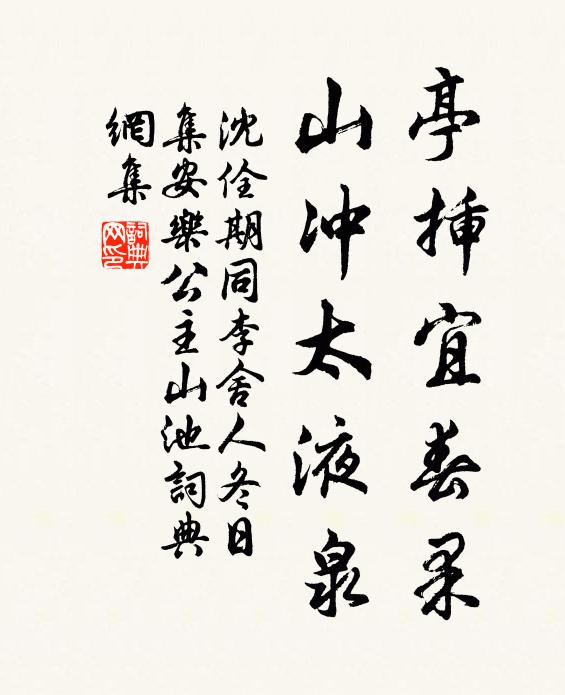 亭插宜春果
山冲太液泉
沈佺期同李舍人冬日
集安樂公主山池詞典
網集
詞典
网印